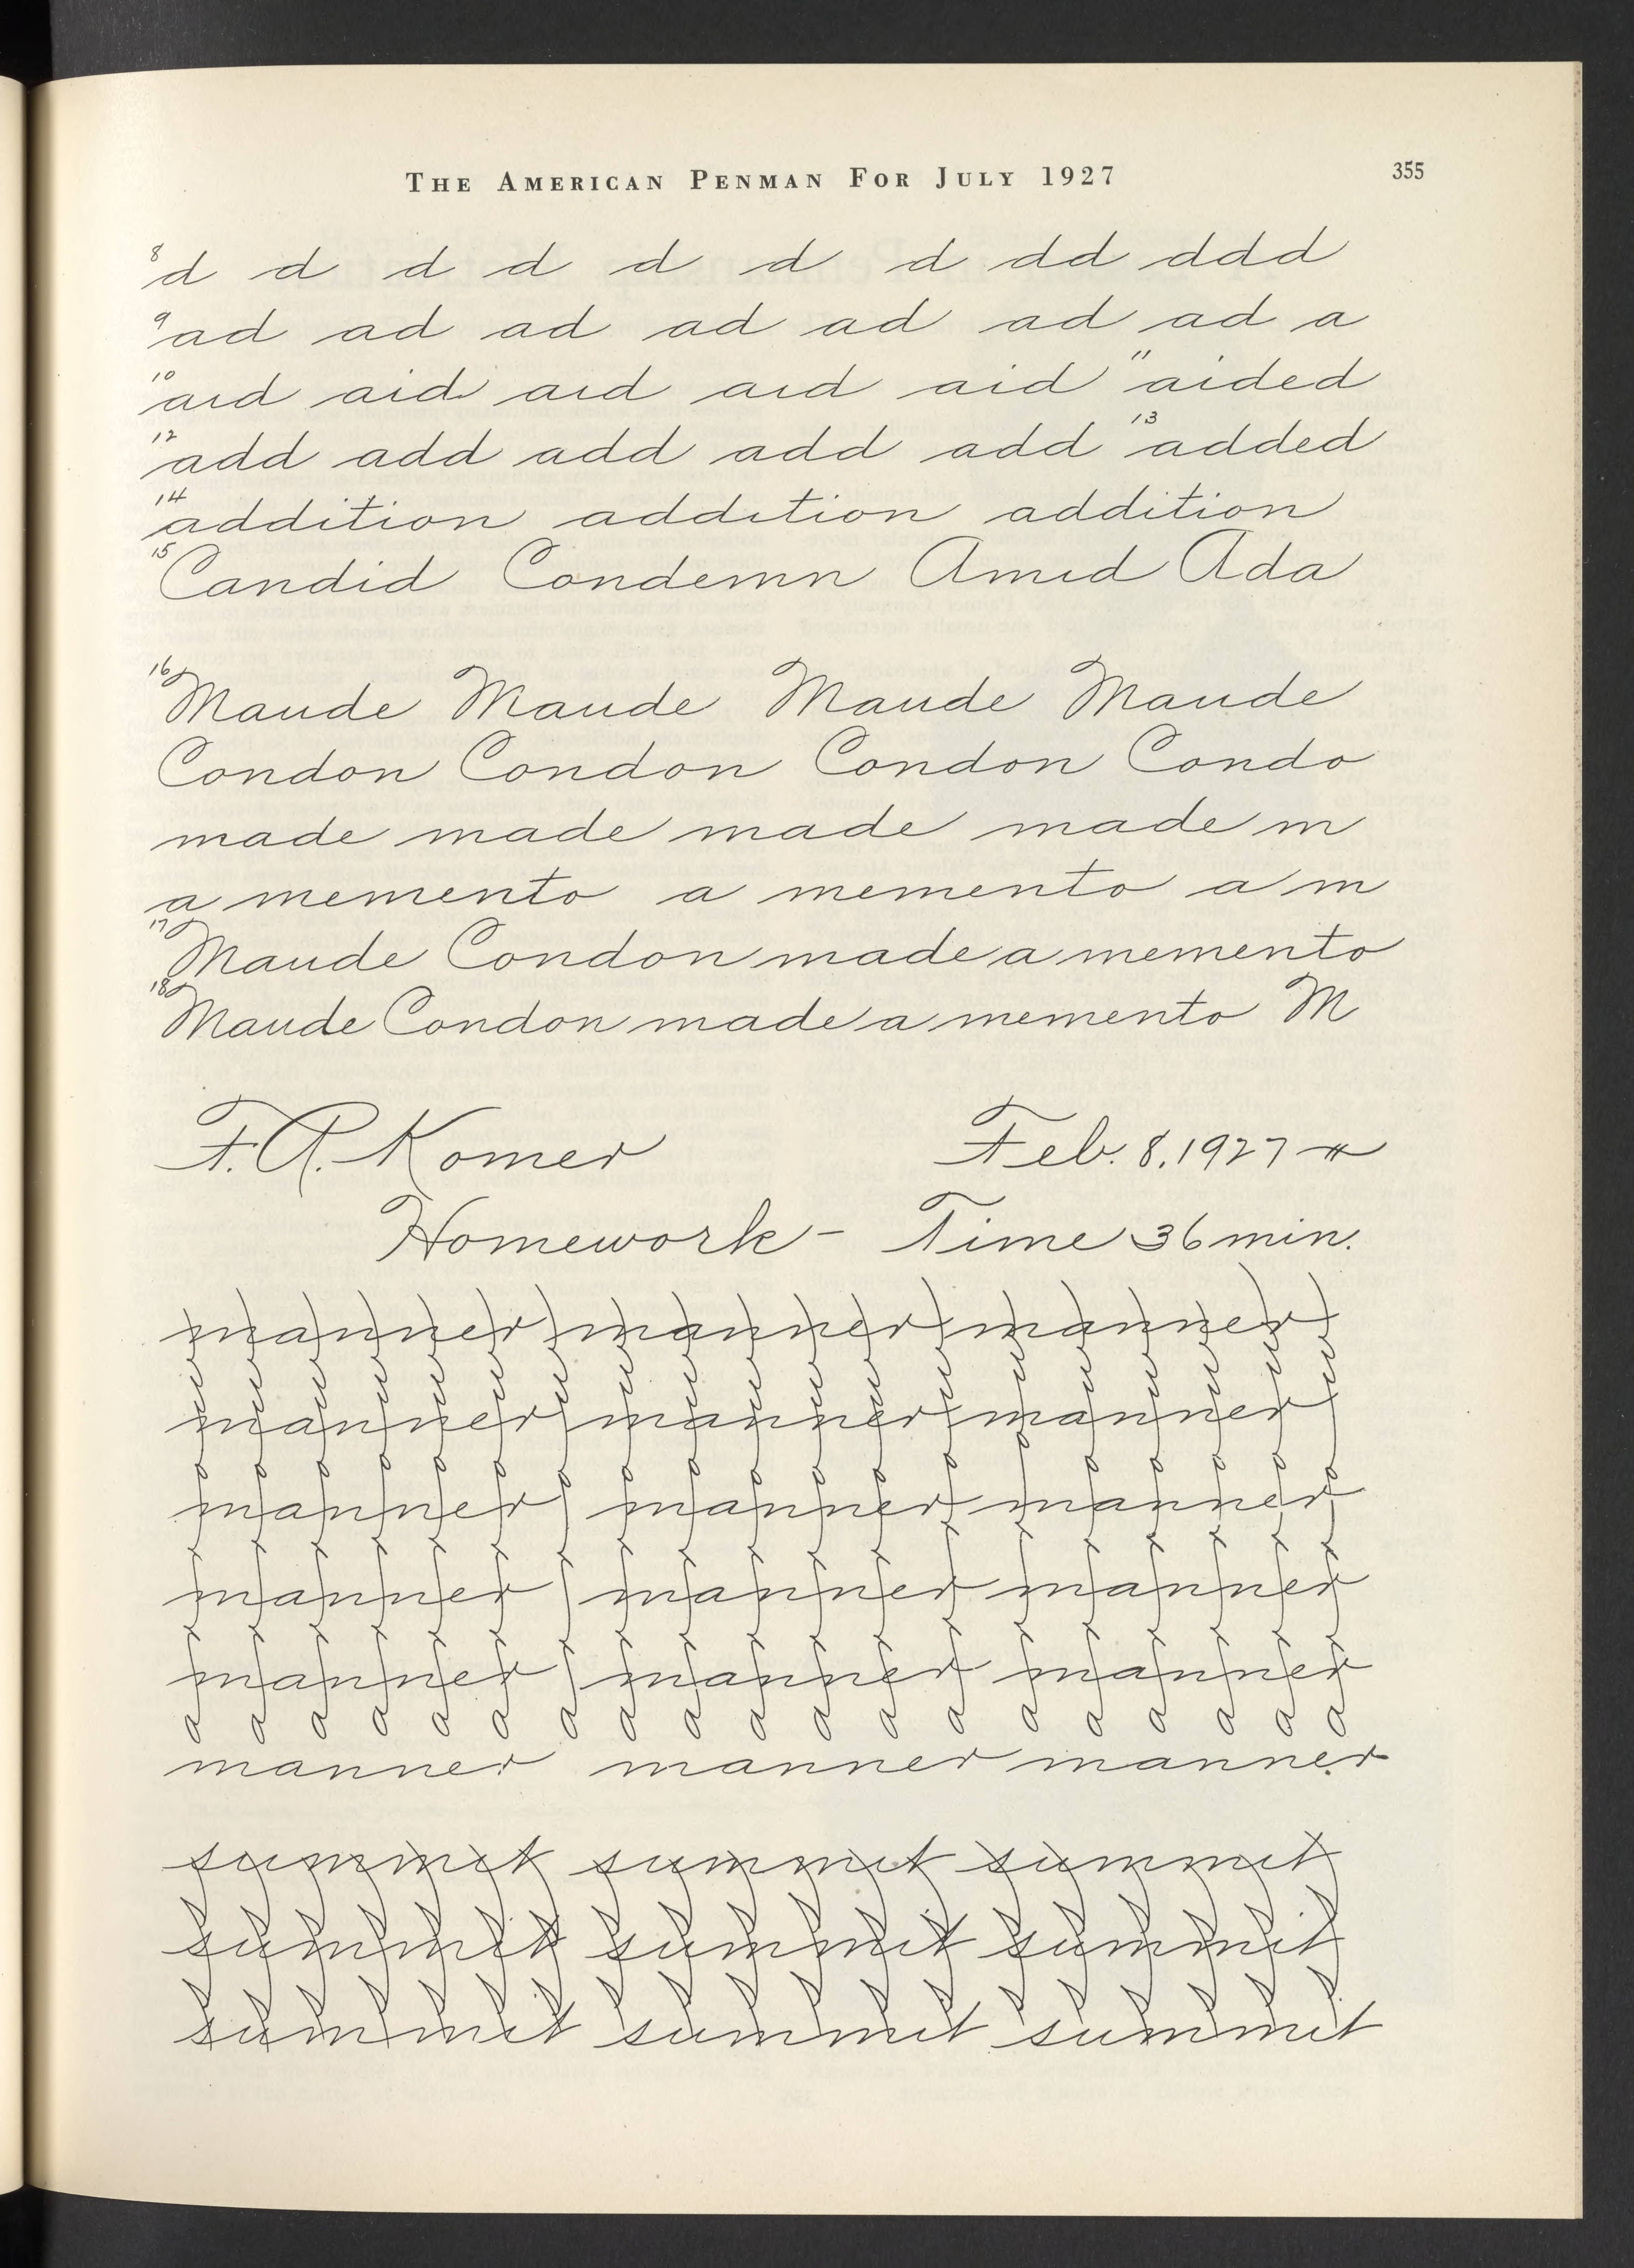 THE AMERICAN PENMAN FOR JULY 1927 355
8 d d d d d d d dd ddd
9 ad ad ad ad ad ad ad a
10 aid aid aid aid aid 11 aided
12 add add add add add 13 added
14 addition addition addition
15 Candid Condemn Amid Ada
16 Maude Maude Maude Maude
Condon Condon Condon Condo
made made made made m
a memento a memento a m
17 Maude Condon made a memento
18 Maude Condon made a memento M
F. R. Komer Feb. 8, 1927
Homework - Time 36 min.
manner manner manner
manner manner manner
manner manner manner
manner manner manner
manner manner manner
a a a a a a a a a a a a a a a a a a a
manner manner manner
summit summit summit
summit summit summit
summit summit summit